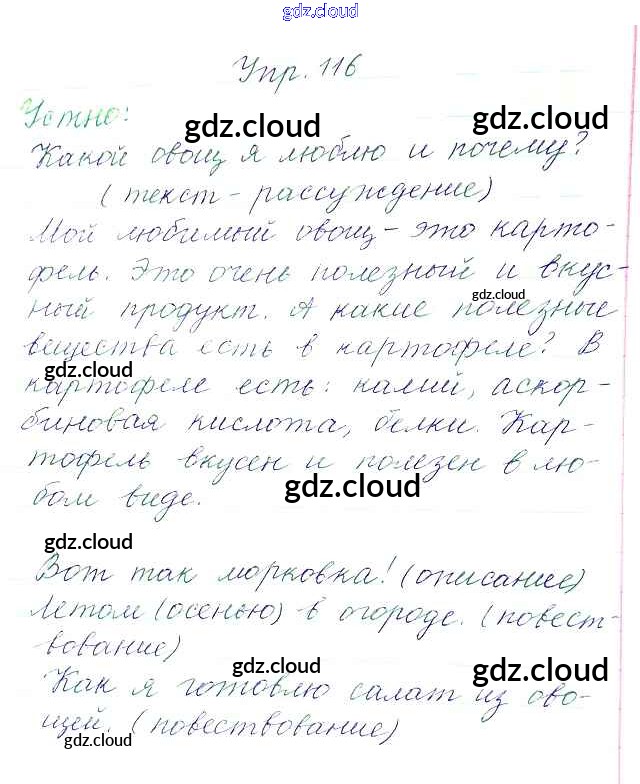 gdz.cloud
Упр. 116
Устно:
gdz.cloud gdz.cloud
Какой овощ я люблю и почему?
(текст - рассуждение)
Мой любимый овощ - это карто-
фель. Это очень полезный и вкус-
gdz.cloud
ный продукт. А какие полезные
вещества есть в картофеле? В
gdz.cloud
картофеле есть: калий, аскор-
биновая кислота, белки. Кар-
тофель вкусен и полезен в лю-
gdz.cloud
бом виде.
gdz.cloud
Вот так морковка! (описание)
Летом (осенью) в огороде. (повест-
вование)
gdz.cloud gdz.cloud
Как я готовлю салат из ово-
щей. (повествование)
gdz.cloud